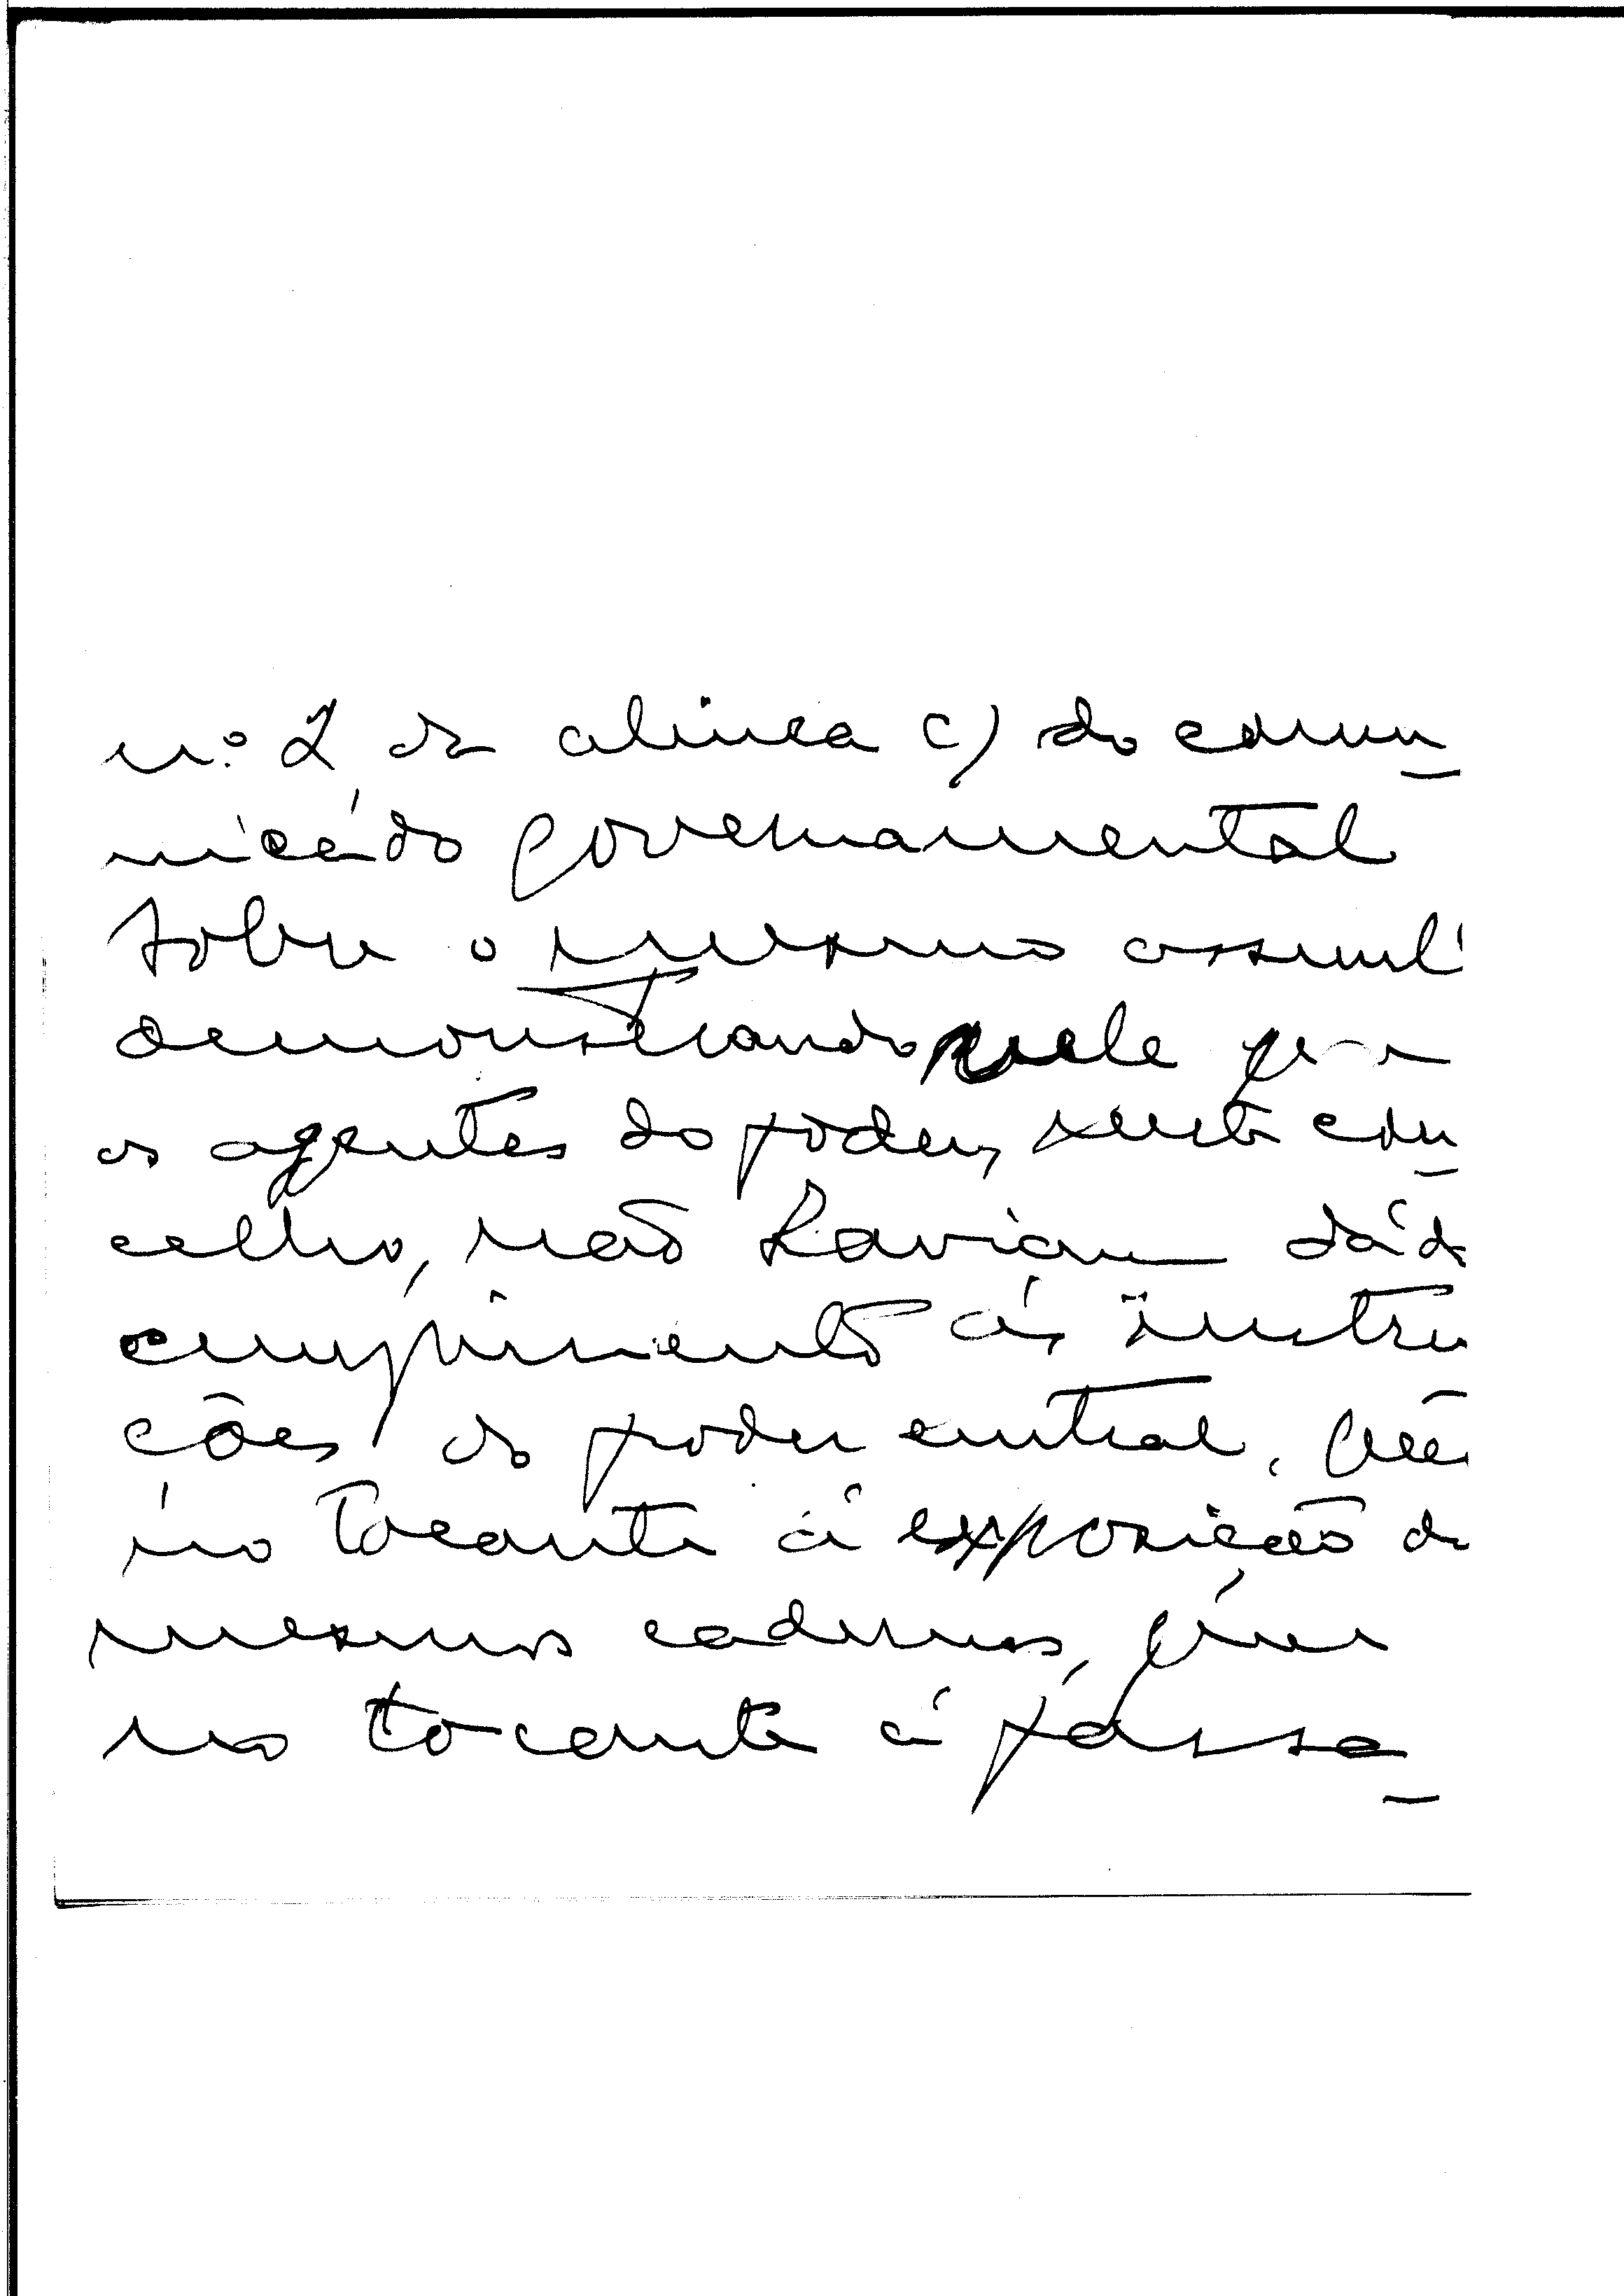 n.º 2 da alinea c) do comu-
nicádo governamental
sobre o mesmo assunt
demonstrando nele que
os agentes do poder, neste con-
celho, não haviam dád
cumprimento ás instru
ções do poder central, quer
no tocante á exposição d
mesmos cadernos, quer
no tocante á passa-